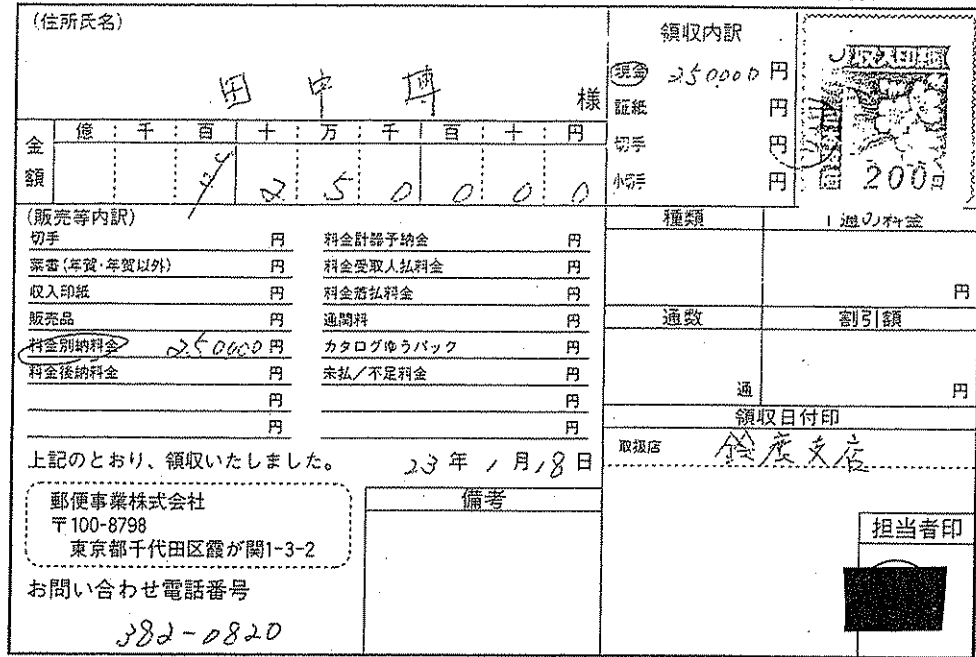 (住所氏名)
田中博 様
金額
億 千 百 十 万 千 百 十 円
2 5 0 0 0 0
領収内訳
現金 250000 円
証紙 円
切手 円
小切手 円
収入印紙
200円
(販売等内訳)
切手 円
葉書(年賀・年賀以外) 円
収入印紙 円
販売品 円
料金別納料金 250000 円
料金後納料金 円
円
円
料金計器予納金 円
料金受取人払料金 円
料金着払料金 円
通関料 円
カタログゆうパック 円
未払/不足料金 円
円
円
種類
1通の料金
円
通数
通
割引額
円
上記のとおり、領収いたしました。 23年1月18日
郵便事業株式会社
〒100-8798
東京都千代田区霞が関1-3-2
お問い合わせ電話番号
382-0820
備考
領収日付印
取扱店 鈴鹿支店
担当者印